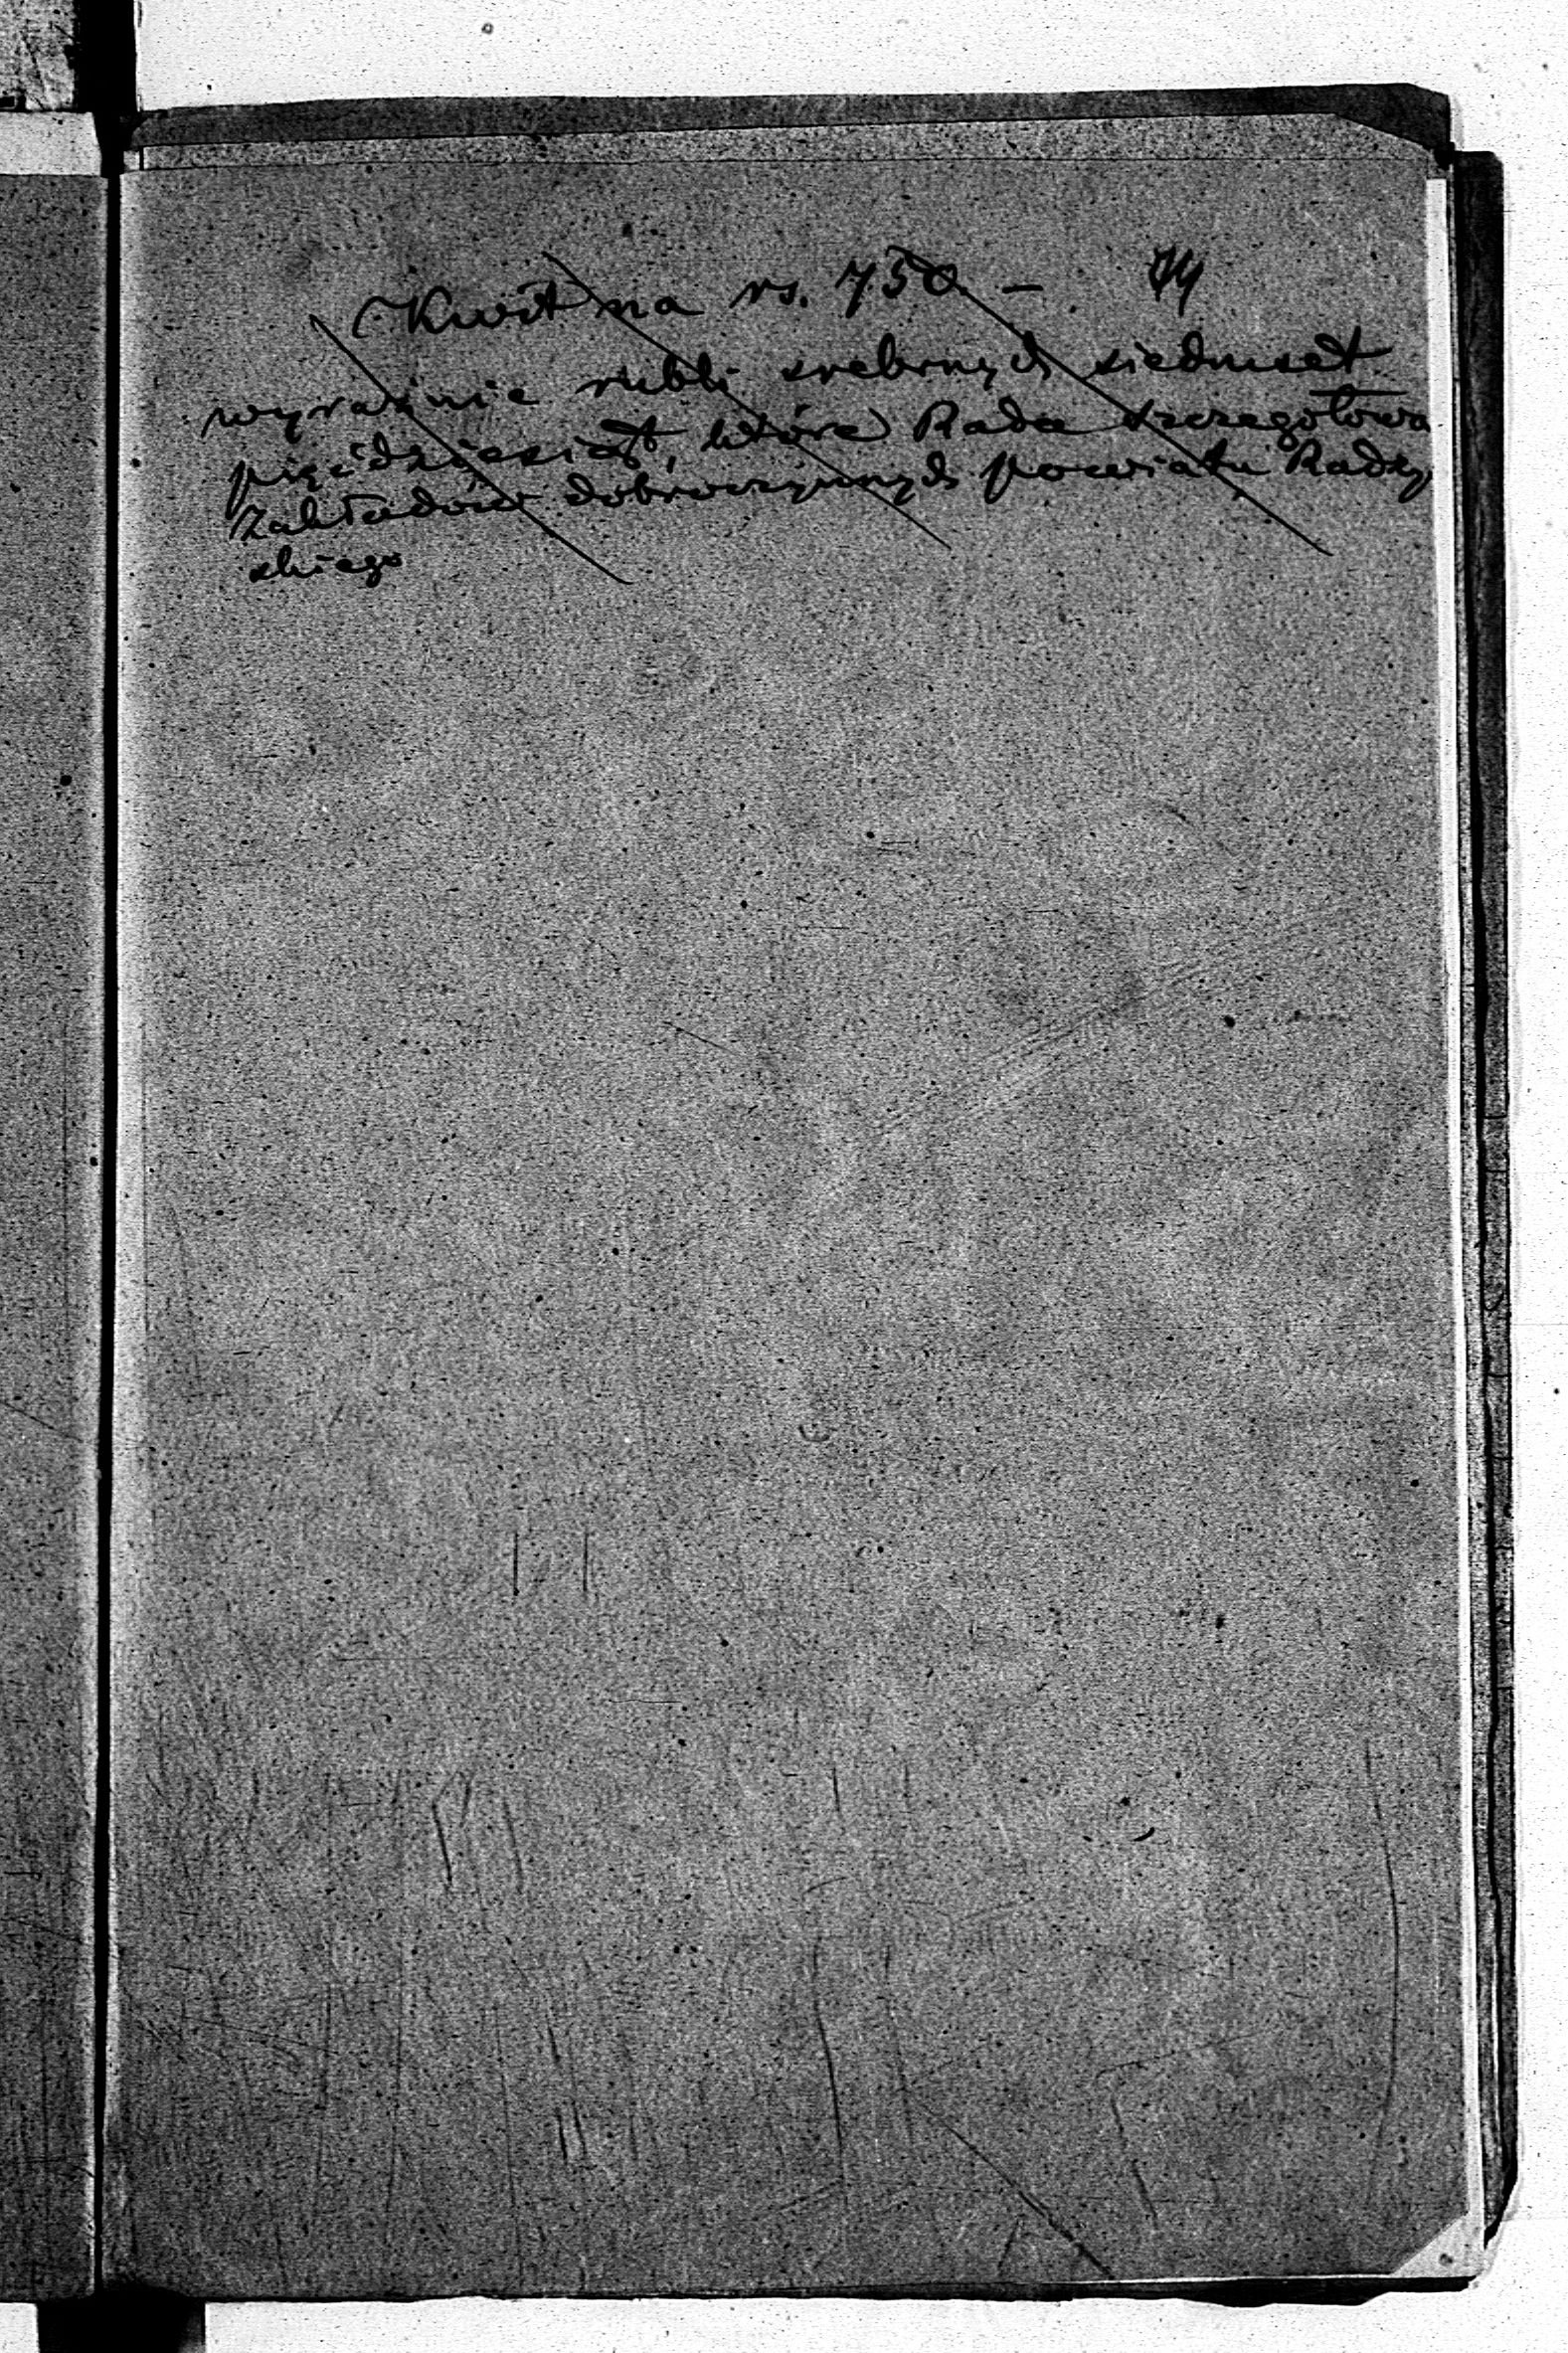 Kwit na rs. 750 –
wyraźnie rubli srebrnych siedmset
pięćdziesiąt, które Rada szczegółowa
Zakładów dobroczynnych powiatu Radzy
skiego